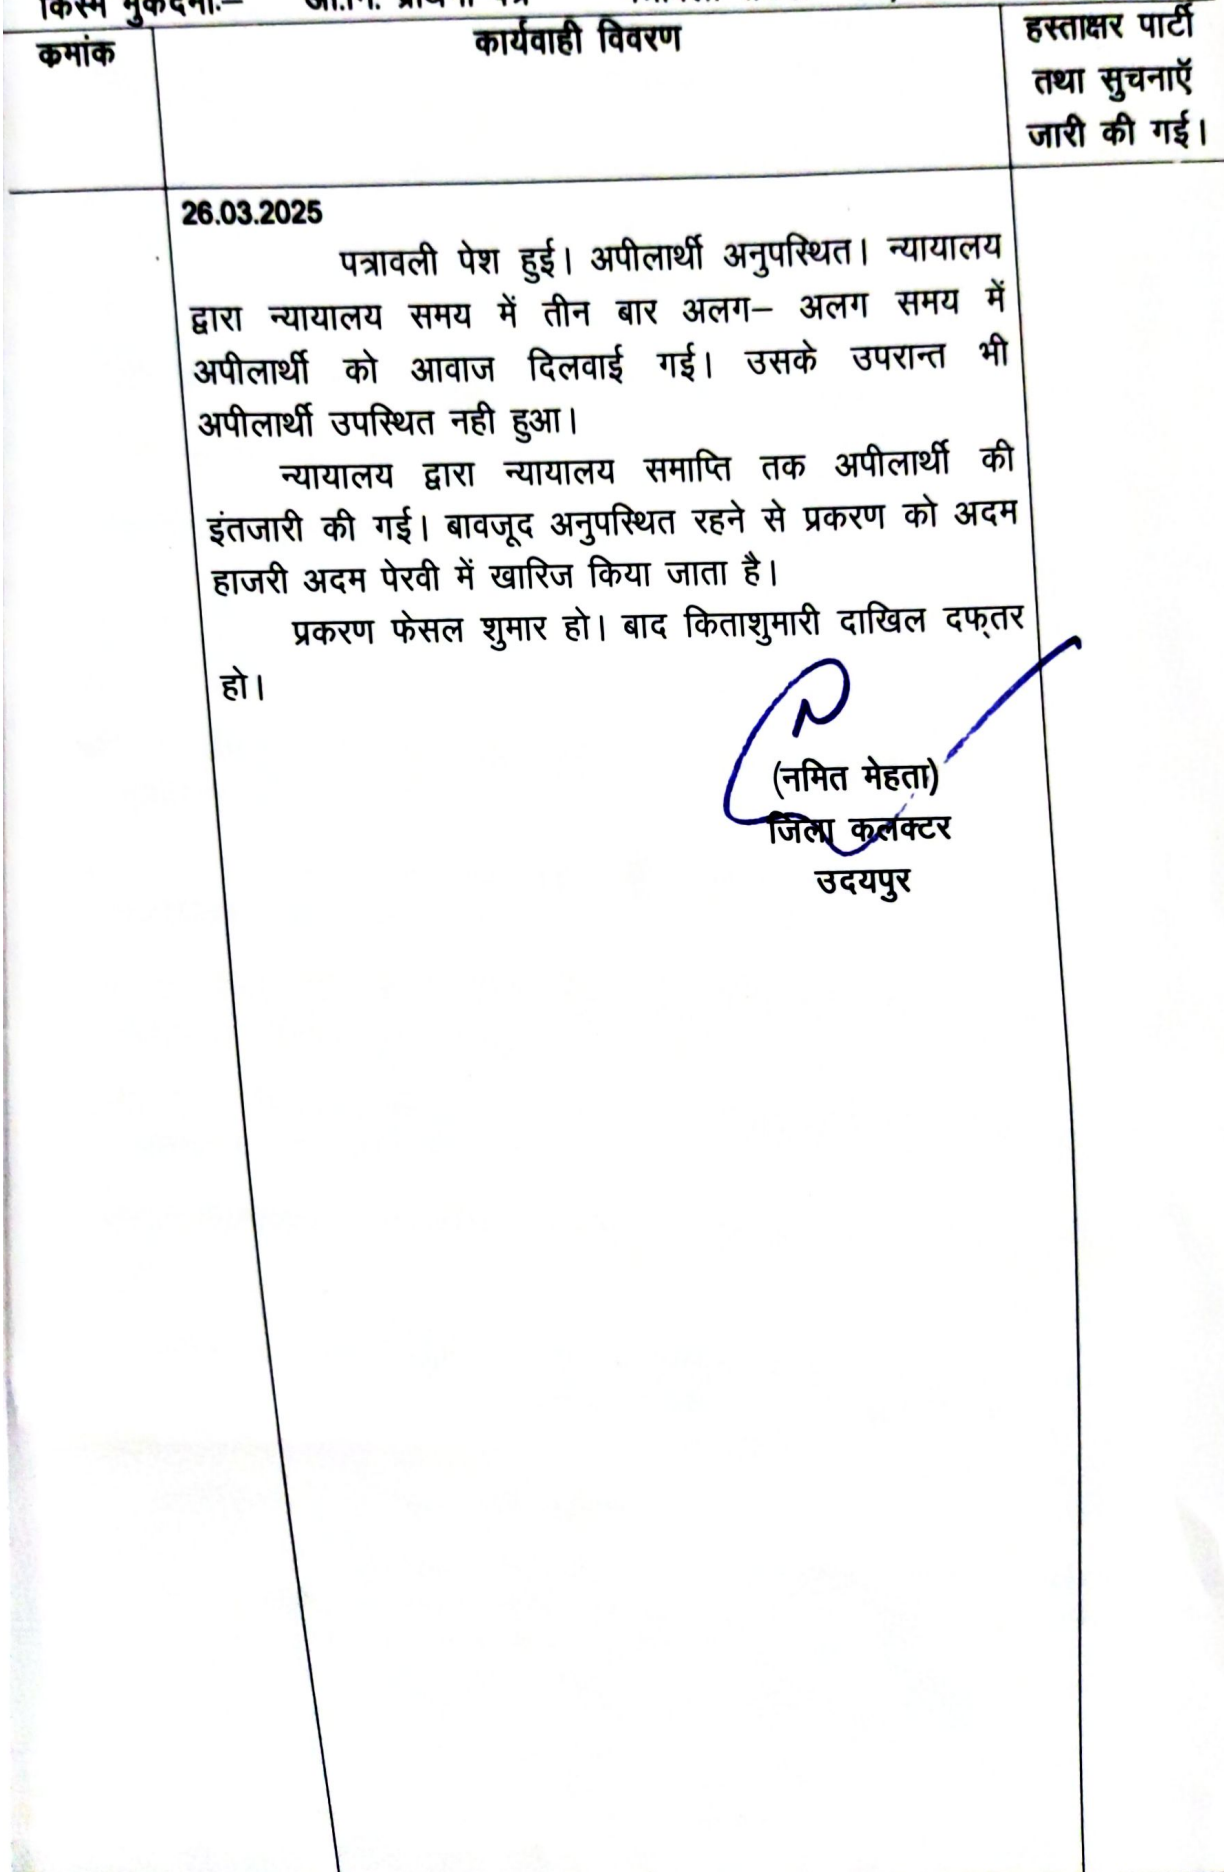 किस्म मुकदमा:–
कमांक
कार्यवाही विवरण
हस्ताक्षर पार्टी
तथा सुचनाऍ
जारी की गई।
26.03.2025
पत्रावली पेश हुई। अपीलार्थी अनुपस्थित। न्यायालय
द्वारा न्यायालय समय में तीन बार अलग– अलग समय में
अपीलार्थी को आवाज दिलवाई गई। उसके उपरान्त भी
अपीलार्थी उपस्थित नही हुआ।
न्यायालय द्वारा न्यायालय समाप्ति तक अपीलार्थी की
इंतजारी की गई। बावजूद अनुपस्थित रहने से प्रकरण को अदम
हाजरी अदम पेरवी में खारिज किया जाता है।
प्रकरण फेसल शुमार हो। बाद किताशुमारी दाखिल दफ्तर
हो।
(नमित मेहता)
जिला कलक्टर
उदयपुर